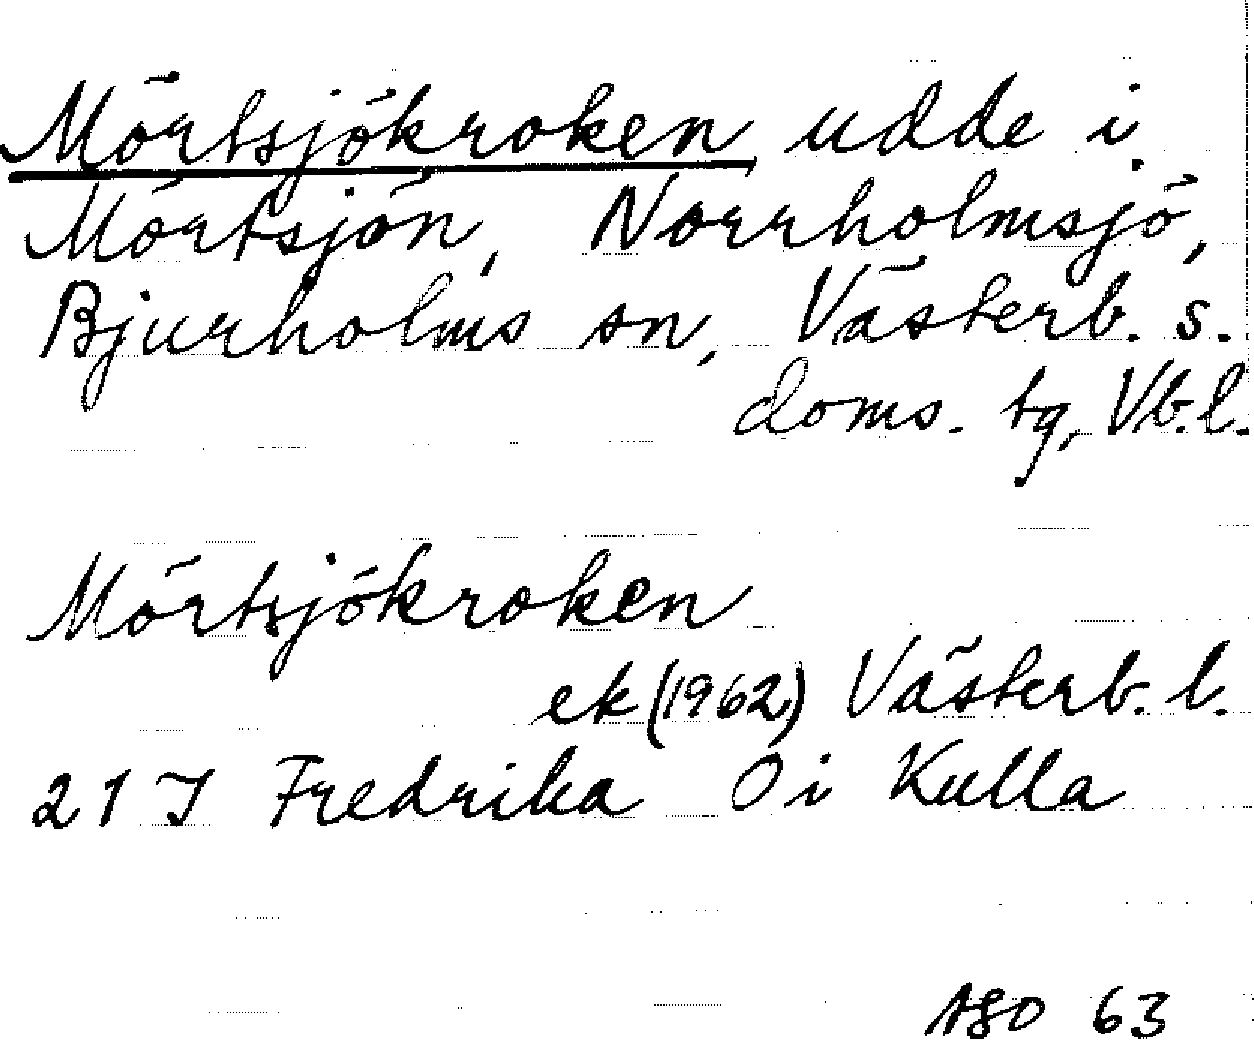 Mörtsjökroken udde i
Mörtsjön, Norrholmsjö,
Bjurholms sn, Västerb. s.
doms. tg, Vb.l.
Mörtsjökroken
ek (1962) Västerb. l.
21 J Fredrika Ö i Kulla
63